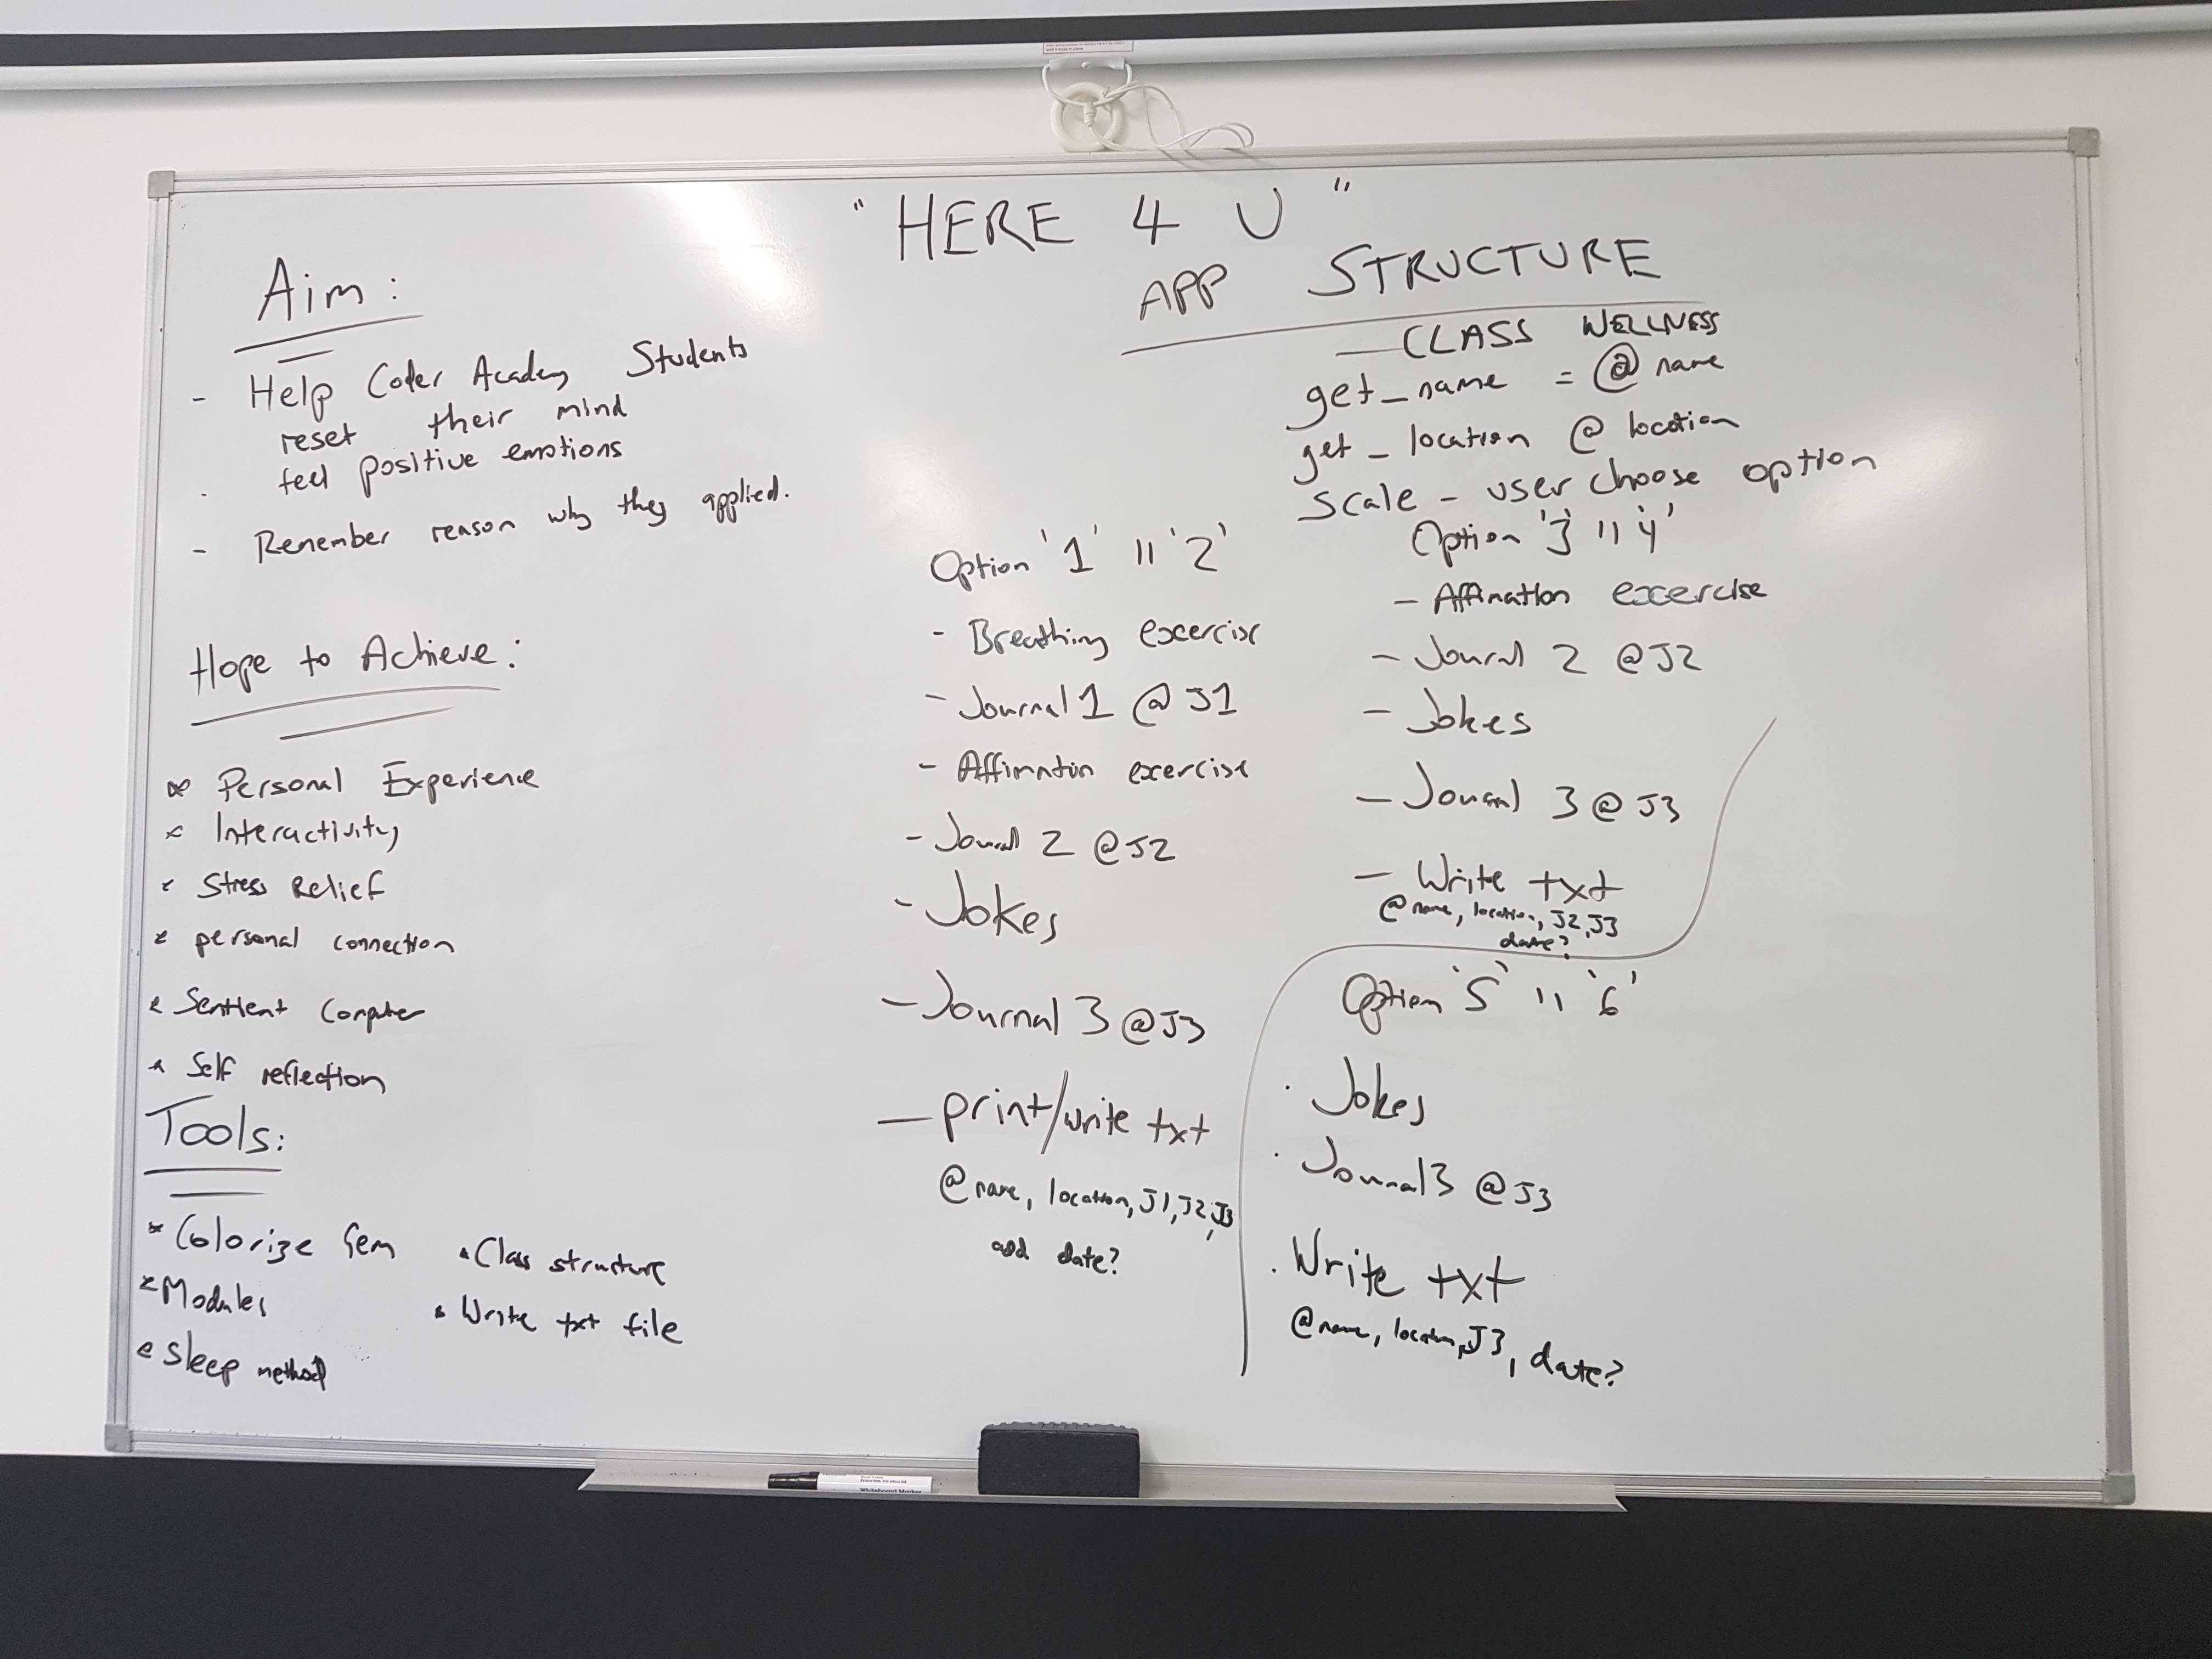 " HERE 4 U "
Aim:
- Help Coder Academy Students
reset their mind
. feel positive emotions
- Remember reason why they applied.
Hope to Achieve:
* Personal Experience
* Interactivity
* Stress Relief
* personal connection
* Sentient Computer
* Self reflection
Tools:
* Colorize Gem
* Modules
* Sleep method
* Class structure
* Write txt file
APP STRUCTURE
— CLASS WELLNESS
get_name = @name
get_location @location
Scale - user choose option
Option '1' || '2'
- Breathing excercise
- Journal 1 @J1
- Affirmation excercise
- Journal 2 @J2
- Jokes
- Journal 3 @J3
— print/write txt
@name, location, J1, J2, J3
add date?
Option '3' || '4'
- Affirmation excercise
- Journal 2 @J2
- Jokes
- Journal 3 @J3
- Write txt
@name, location, J2, J3
date?
Option '5' || '6'
. Jokes
. Journal 3 @J3
. Write txt
@name, location, J3, date?
Whiteboard Marker